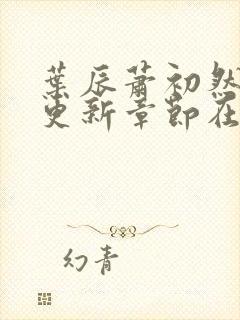 葉辰蕭初然
更新章節在
幻青